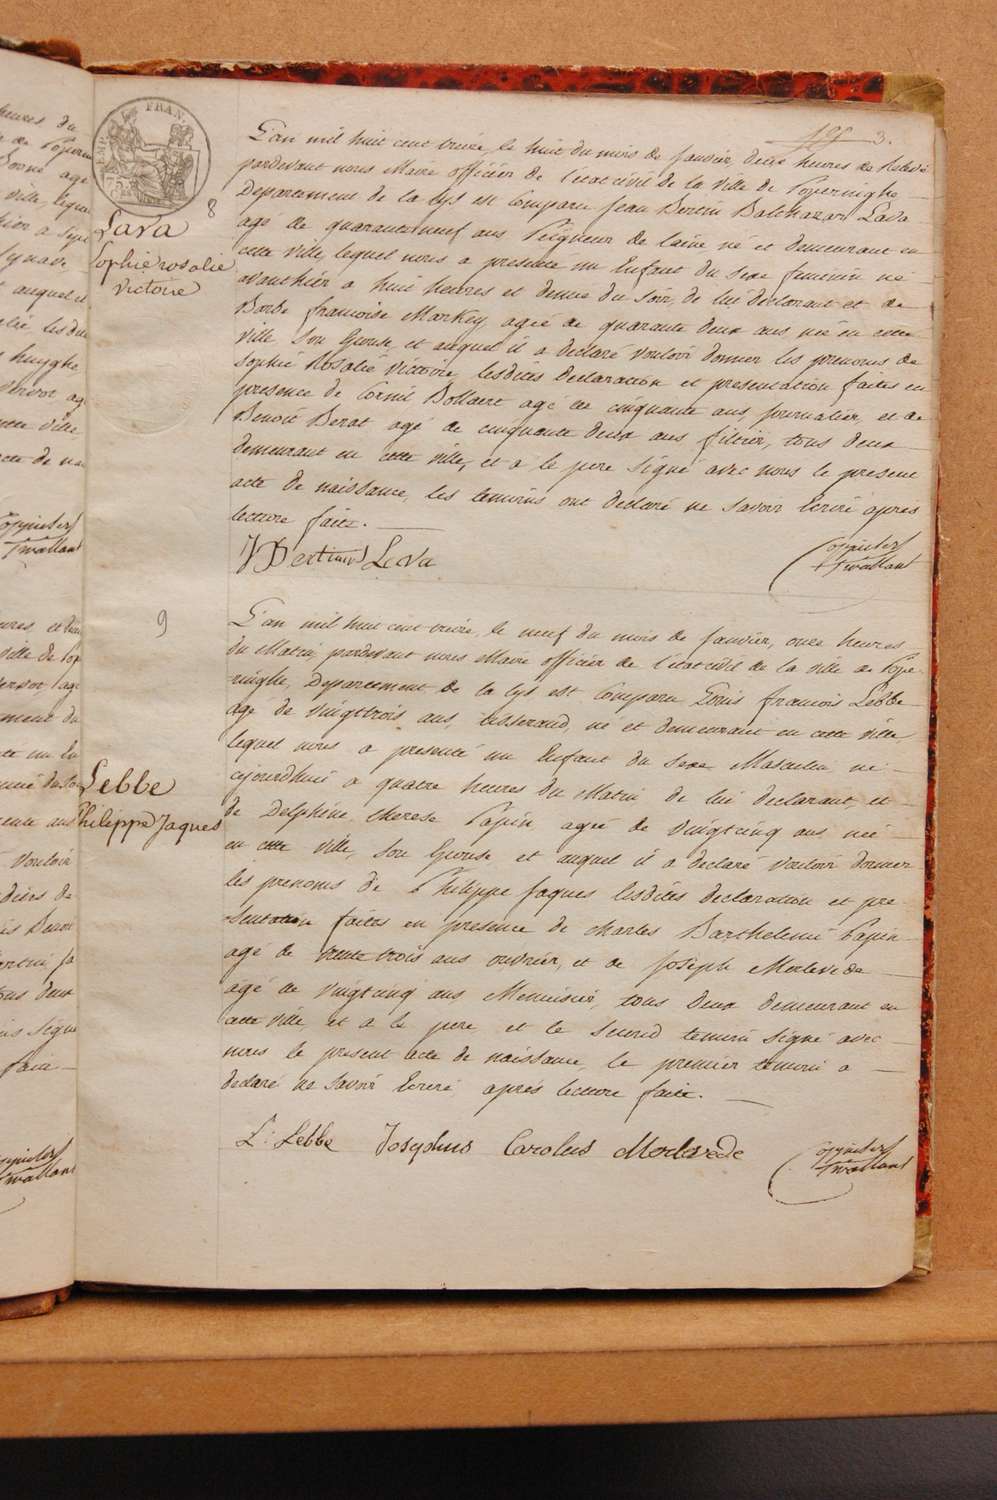 3.
EMP. FRAN.
8
Lava
Sophie rosalie
Victoire
L'an mil huit cent treize, le huit du mois de Janvier, deux heures de Relevé
pardevant nous Maire officier de l'état civil de la ville de Poperinghe
Departement de la Lys est Comparu Jean Bertin Balthazar Lava
agé de quaranteneuf ans Peigneur de laine né et demeurant en
cette ville, lequel nous a presenté un Enfant du sexe feminin né
avanthier a huit heures et demie du soir, de lui declarant et de
Barbe francoise Markey agée de quarante deux ans née en cette
ville, son Epouse, et auquel il a declaré vouloir donner les prenoms de
Sophie Rosalie Victoire, lesdites declaration et presentation faites en
presence de Cornil Bollaert agé de cinquante ans journalier, et de
Benoit Berat agé de cinquante deux ans filtier, tous deux
demeurant en cette ville, et a le pere signé avec nous le present
acte de naissance, les temoins ont declaré ne savoir Ecrire après
lecture faite.
J Bertinus Lava
9
Lebbe
Philippe Jaques
L'an mil huit cent treize, le neuf du mois de Janvier, onze heures
du Matin pardevant nous Maire officier de l'état civil de la ville de Pope-
ringhe, Departement de la Lys est Comparu Louis francois Lebbe
agé de vingttrois ans, tisserand, né et demeurant en cette ville
lequel nous a presenté un Enfant du sexe Masculin né
cejourdhui a quatre heures du Matin de lui declarant et
de Delphine therese Papin agée de vingtcinq ans née
en cette ville, son Epouse et auquel il a declaré vouloir donner
les prenoms de Philippe Jaques lesdites declaration et pre-
sentation faites en presence de Charles Barthelemi Papin
agé de trente trois ans ouvrier, et de Joseph Merlevede
agé de vingtcinq ans Menuisier, tous deux demeurant en
cette ville, et a le pere et le second temoin signé avec
nous le present acte de naissance, le premier temoin a
declaré ne savoir Ecrire après lecture faite.
L: Lebbe Josephus Carolus Merlevede